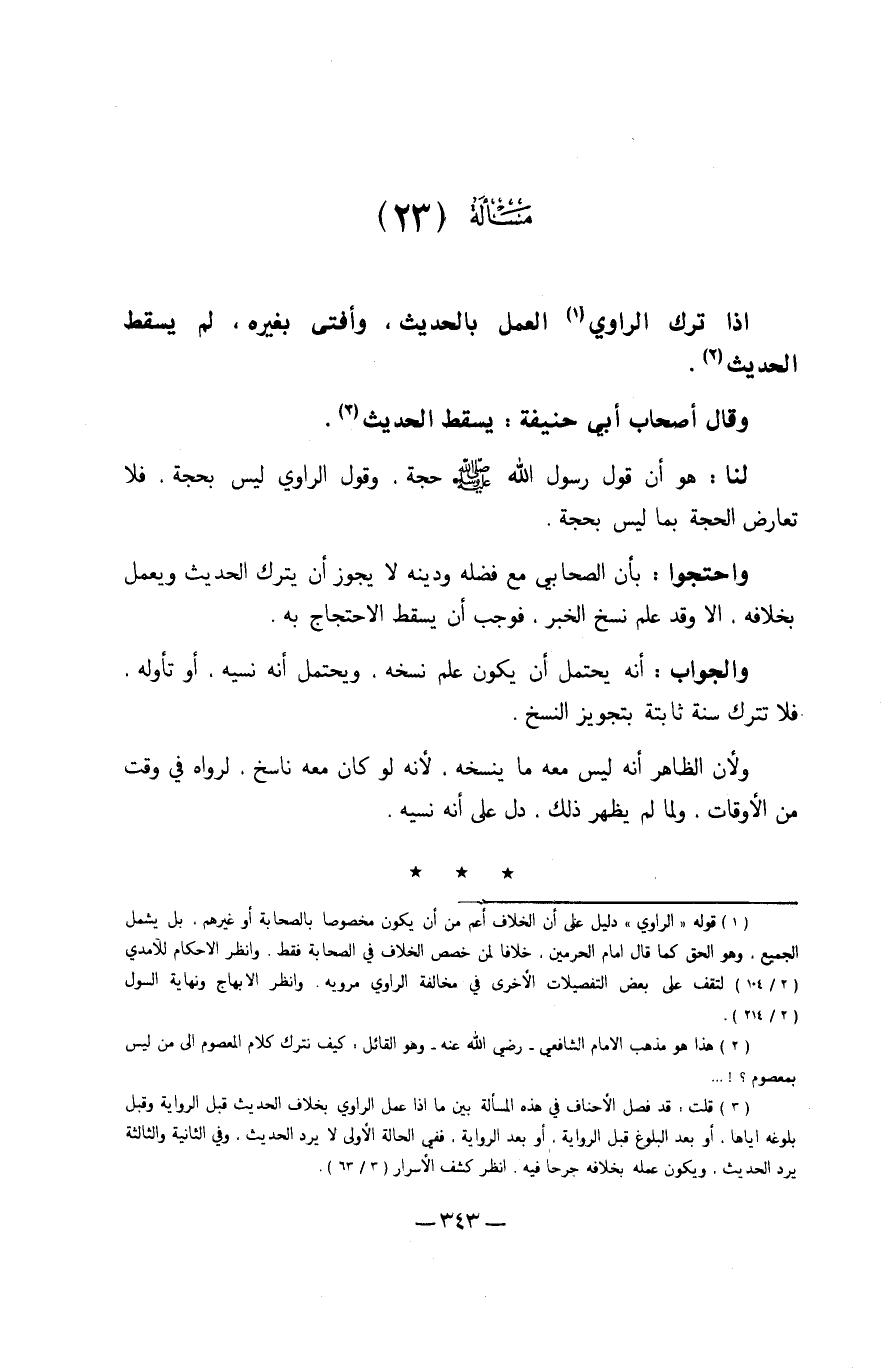 مسألة (٢٣)
اذا ترك الراوي(١) العمل بالحديث ، وأفتى بغيره ، لم يسقط
الحديث(٢) .
وقال أصحاب أبي حنيفة : يسقط الحديث(٣) .
لنا : هو أن قول رسول الله ﷺ حجة ، وقول الراوي ليس بحجة ، فلا
تعارض الحجة بما ليس بحجة .
واحتجوا : بأن الصحابي مع فضله ودينه لا يجوز أن يترك الحديث ويعمل
بخلافه ، الا وقد علم نسخ الخبر ، فوجب أن يسقط الاحتجاج به .
والجواب : أنه يحتمل أن يكون علم نسخه ، ويحتمل أنه نسيه ، أو تأوله ،
فلا تترك سنة ثابتة بتجويز النسخ .
ولأن الظاهر أنه ليس معه ما ينسخه ، لأنه لو كان معه ناسخ ، لرواه في وقت
من الأوقات ، ولما لم يظهر ذلك ، دل على أنه نسيه .
★ ★ ★
( ١ ) قوله « الراوي » دليل على أن الخلاف أعم من أن يكون مخصوصا بالصحابة أو غيرهم ، بل يشمل
الجميع ، وهو الحق كما قال امام الحرمين ، خلافا لمن خصص الخلاف في الصحابة فقط . وانظر الاحكام للآمدي
( ٢ / ١٠٤ ) لتقف على بعض التفصيلات الأخرى في مخالفة الراوي مرويه . وانظر الابهاج ونهاية السول
( ٢ / ٢١٤ ) .
( ٢ ) هذا هو مذهب الامام الشافعي ـ رضي الله عنه ـ وهو القائل : كيف نترك كلام المعصوم الى من ليس
بمعصوم ؟ ! ...
( ٣ ) قلت : قد فصل الأحناف في هذه المسألة بين ما اذا عمل الراوي بخلاف الحديث قبل الرواية وقبل
بلوغه اياها ، أو بعد البلوغ قبل الرواية ، أو بعد الرواية ، ففي الحالة الأولى لا يرد الحديث ، وفي الثانية والثالثة
يرد الحديث ، ويكون عمله بخلافه جرحاً فيه . انظر كشف الأسرار ( ٣ / ٦٣ ) .
— ٣٤٣ —